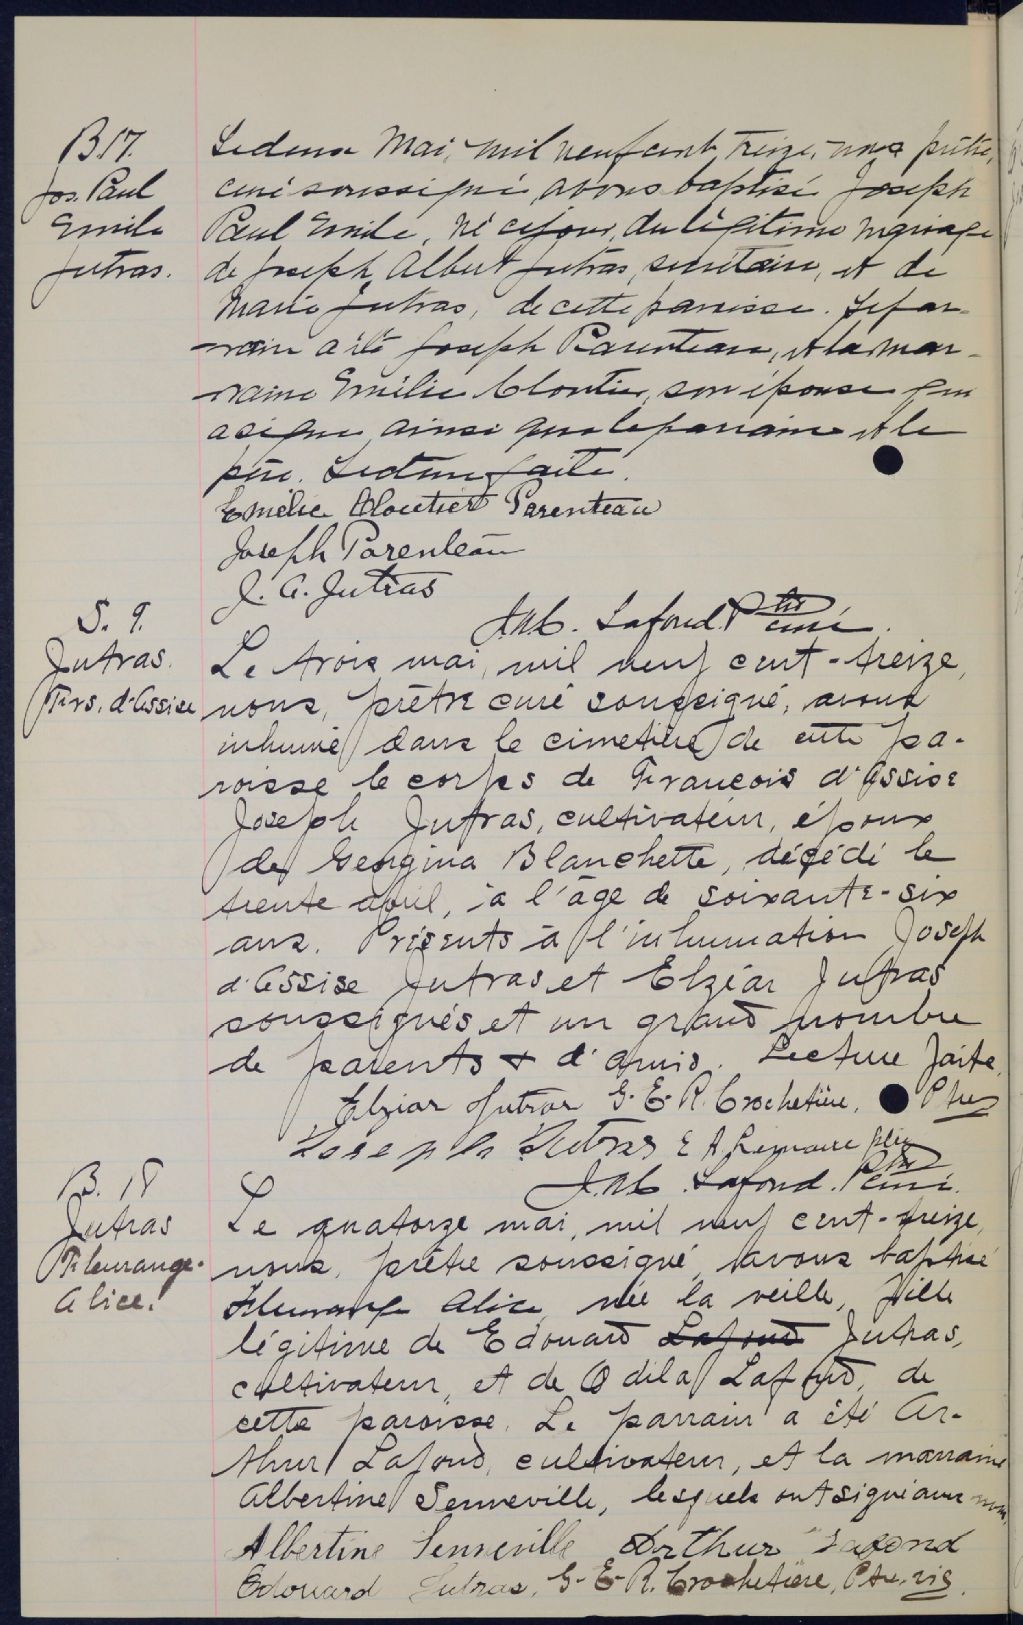 B.17.
Jos. Paul
Emile
Jutras.
Le deux Mai, mil neuf cent treize, nous prêtre,
curé soussigné, avons baptisé Joseph
Paul Emile, né ce jour, du légitime mariage
de Joseph Albert Jutras, secrétaire, et de
Marie Jutras, de cette paroisse. Le par-
rain a été Joseph Parenteau, et la mar-
raine Emélie Cloutier, son épouse qui
a signé ainsi que le parrain et le
père. Lecture faite.
Emélie Cloutier Parenteau
Joseph Parenteau
J. A. Jutras
Lafond. Ptre curé.
S. 9.
Jutras.
Frs. d'Assise
Le trois mai, mil neuf cent-treize,
nous, prêtre curé soussigné, avons
inhumé dans le cimetière de cette pa-
roisse le corps de François d'Assise
Joseph Jutras, cultivateur, époux
de Georgina Blanchette, décédé le
trente avril, à l'âge de soixante-six
ans. Présents à l'inhumation Joseph
d'Assise Jutras et Elzéar Jutras
soussignés et un grand nombre
de parents & d'amis. Lecture faite.
Elziar Jutras G. E. R. Crochetière, Ptre
Joseph Jutras E A Lemaire ptre
Lafond. Ptre curé.
B. 18
Jutras
Fleurange-
Alice.
Le quatorze mai, mil neuf cent-treize,
nous, prêtre soussigné, avons baptisé
Fleurange Alice, née la veille, fille
légitime de Edouard Lafond Jutras,
cultivateur, et de Odila Lafond, de
cette paroisse. Le parrain a été Ar-
thur Lafond, cultivateur, et la marraine
Albertine Senneville, lesquels ont signé avec nous.
Albertine Senneville Arthur Lafond
Edouard Jutras, G. E. R. Crochetière, Ptre. vic.